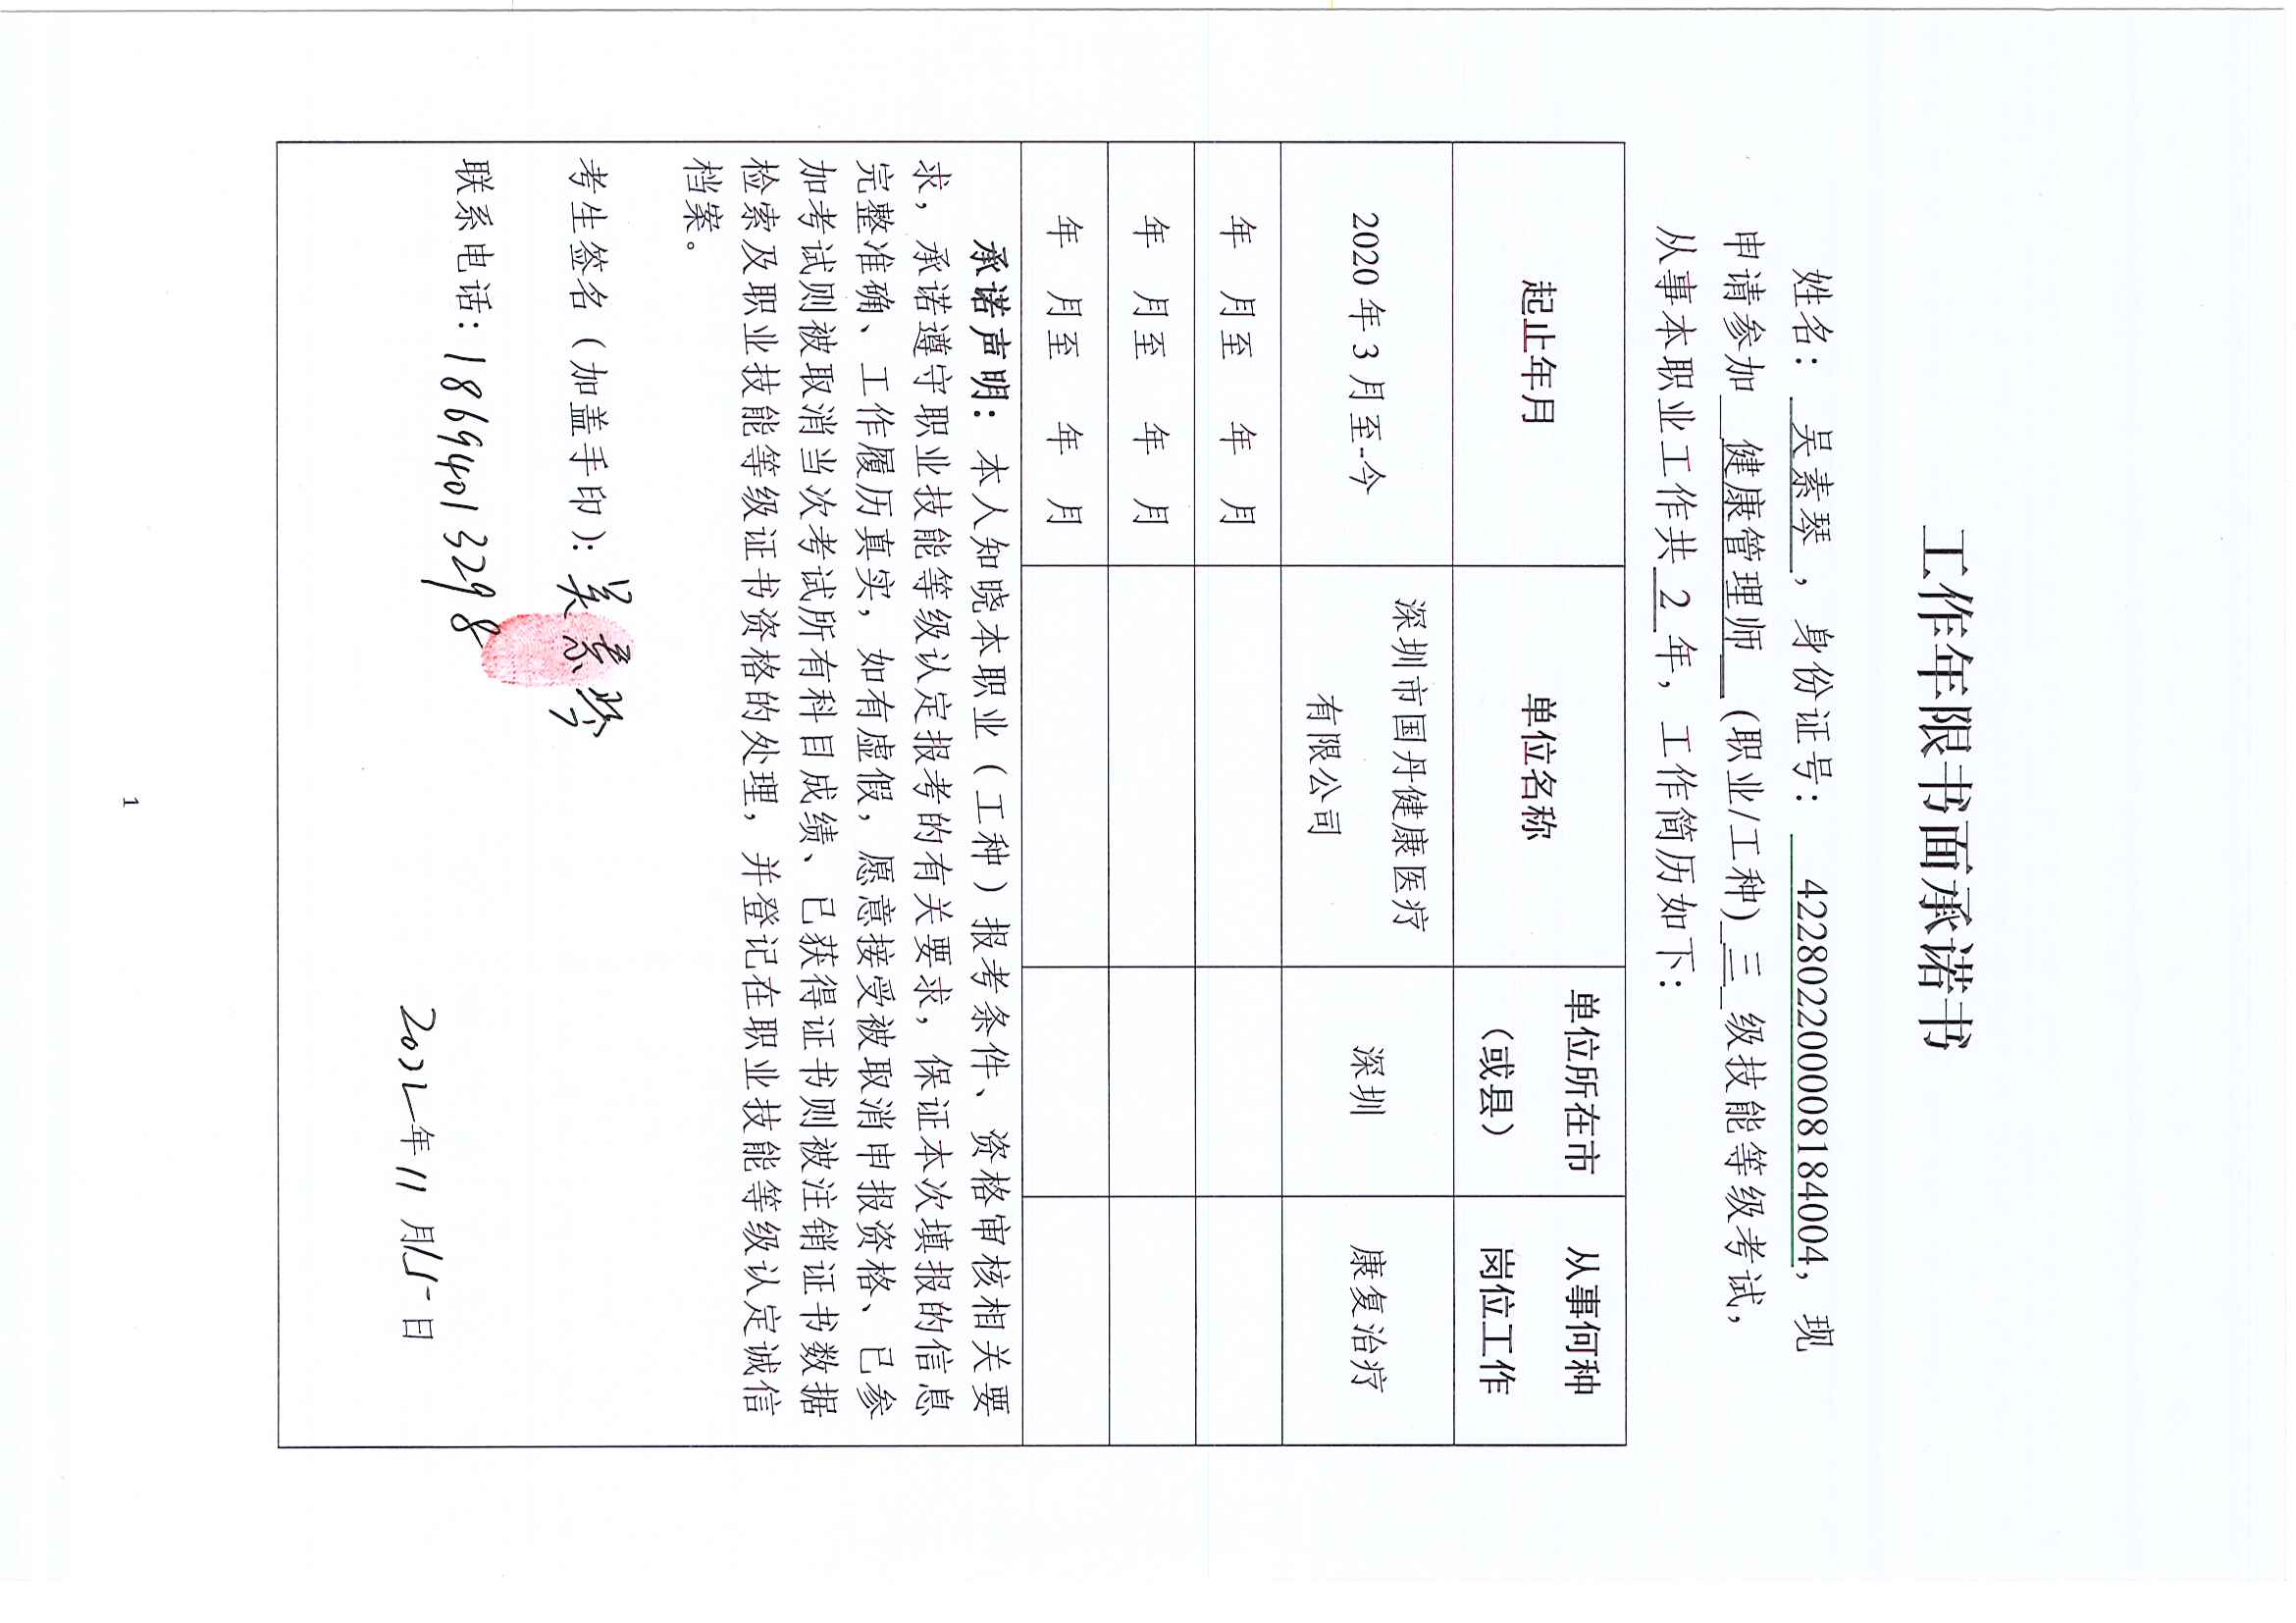 工作年限书面承诺书
姓名： 吴素琴 ，身份证号： 422802200008184004，现
申请参加 健康管理师 (职业/工种) 三 级技能等级考试，
从事本职业工作共 2 年，工作简历如下：
起止年月 单位名称 单位所在市（或县） 从事何种岗位工作
2020 年 3 月至-今 深圳市国丹健康医疗有限公司 深圳 康复治疗
年 月至 年 月
年 月至 年 月
年 月至 年 月
承诺声明：本人知晓本职业（工种）报考条件、资格审核相关要
求，承诺遵守职业技能等级认定报考的有关要求，保证本次填报的信息
完整准确、工作履历真实，如有虚假，愿意接受被取消申报资格、已参
加考试则被取消当次考试所有科目成绩、已获得证书则被注销证书数据
检索及职业技能等级证书资格的处理，并登记在职业技能等级认定诚信
档案。
考生签名（加盖手印）：吴素琴
联系电话：18694013298
2022年11月15日
1